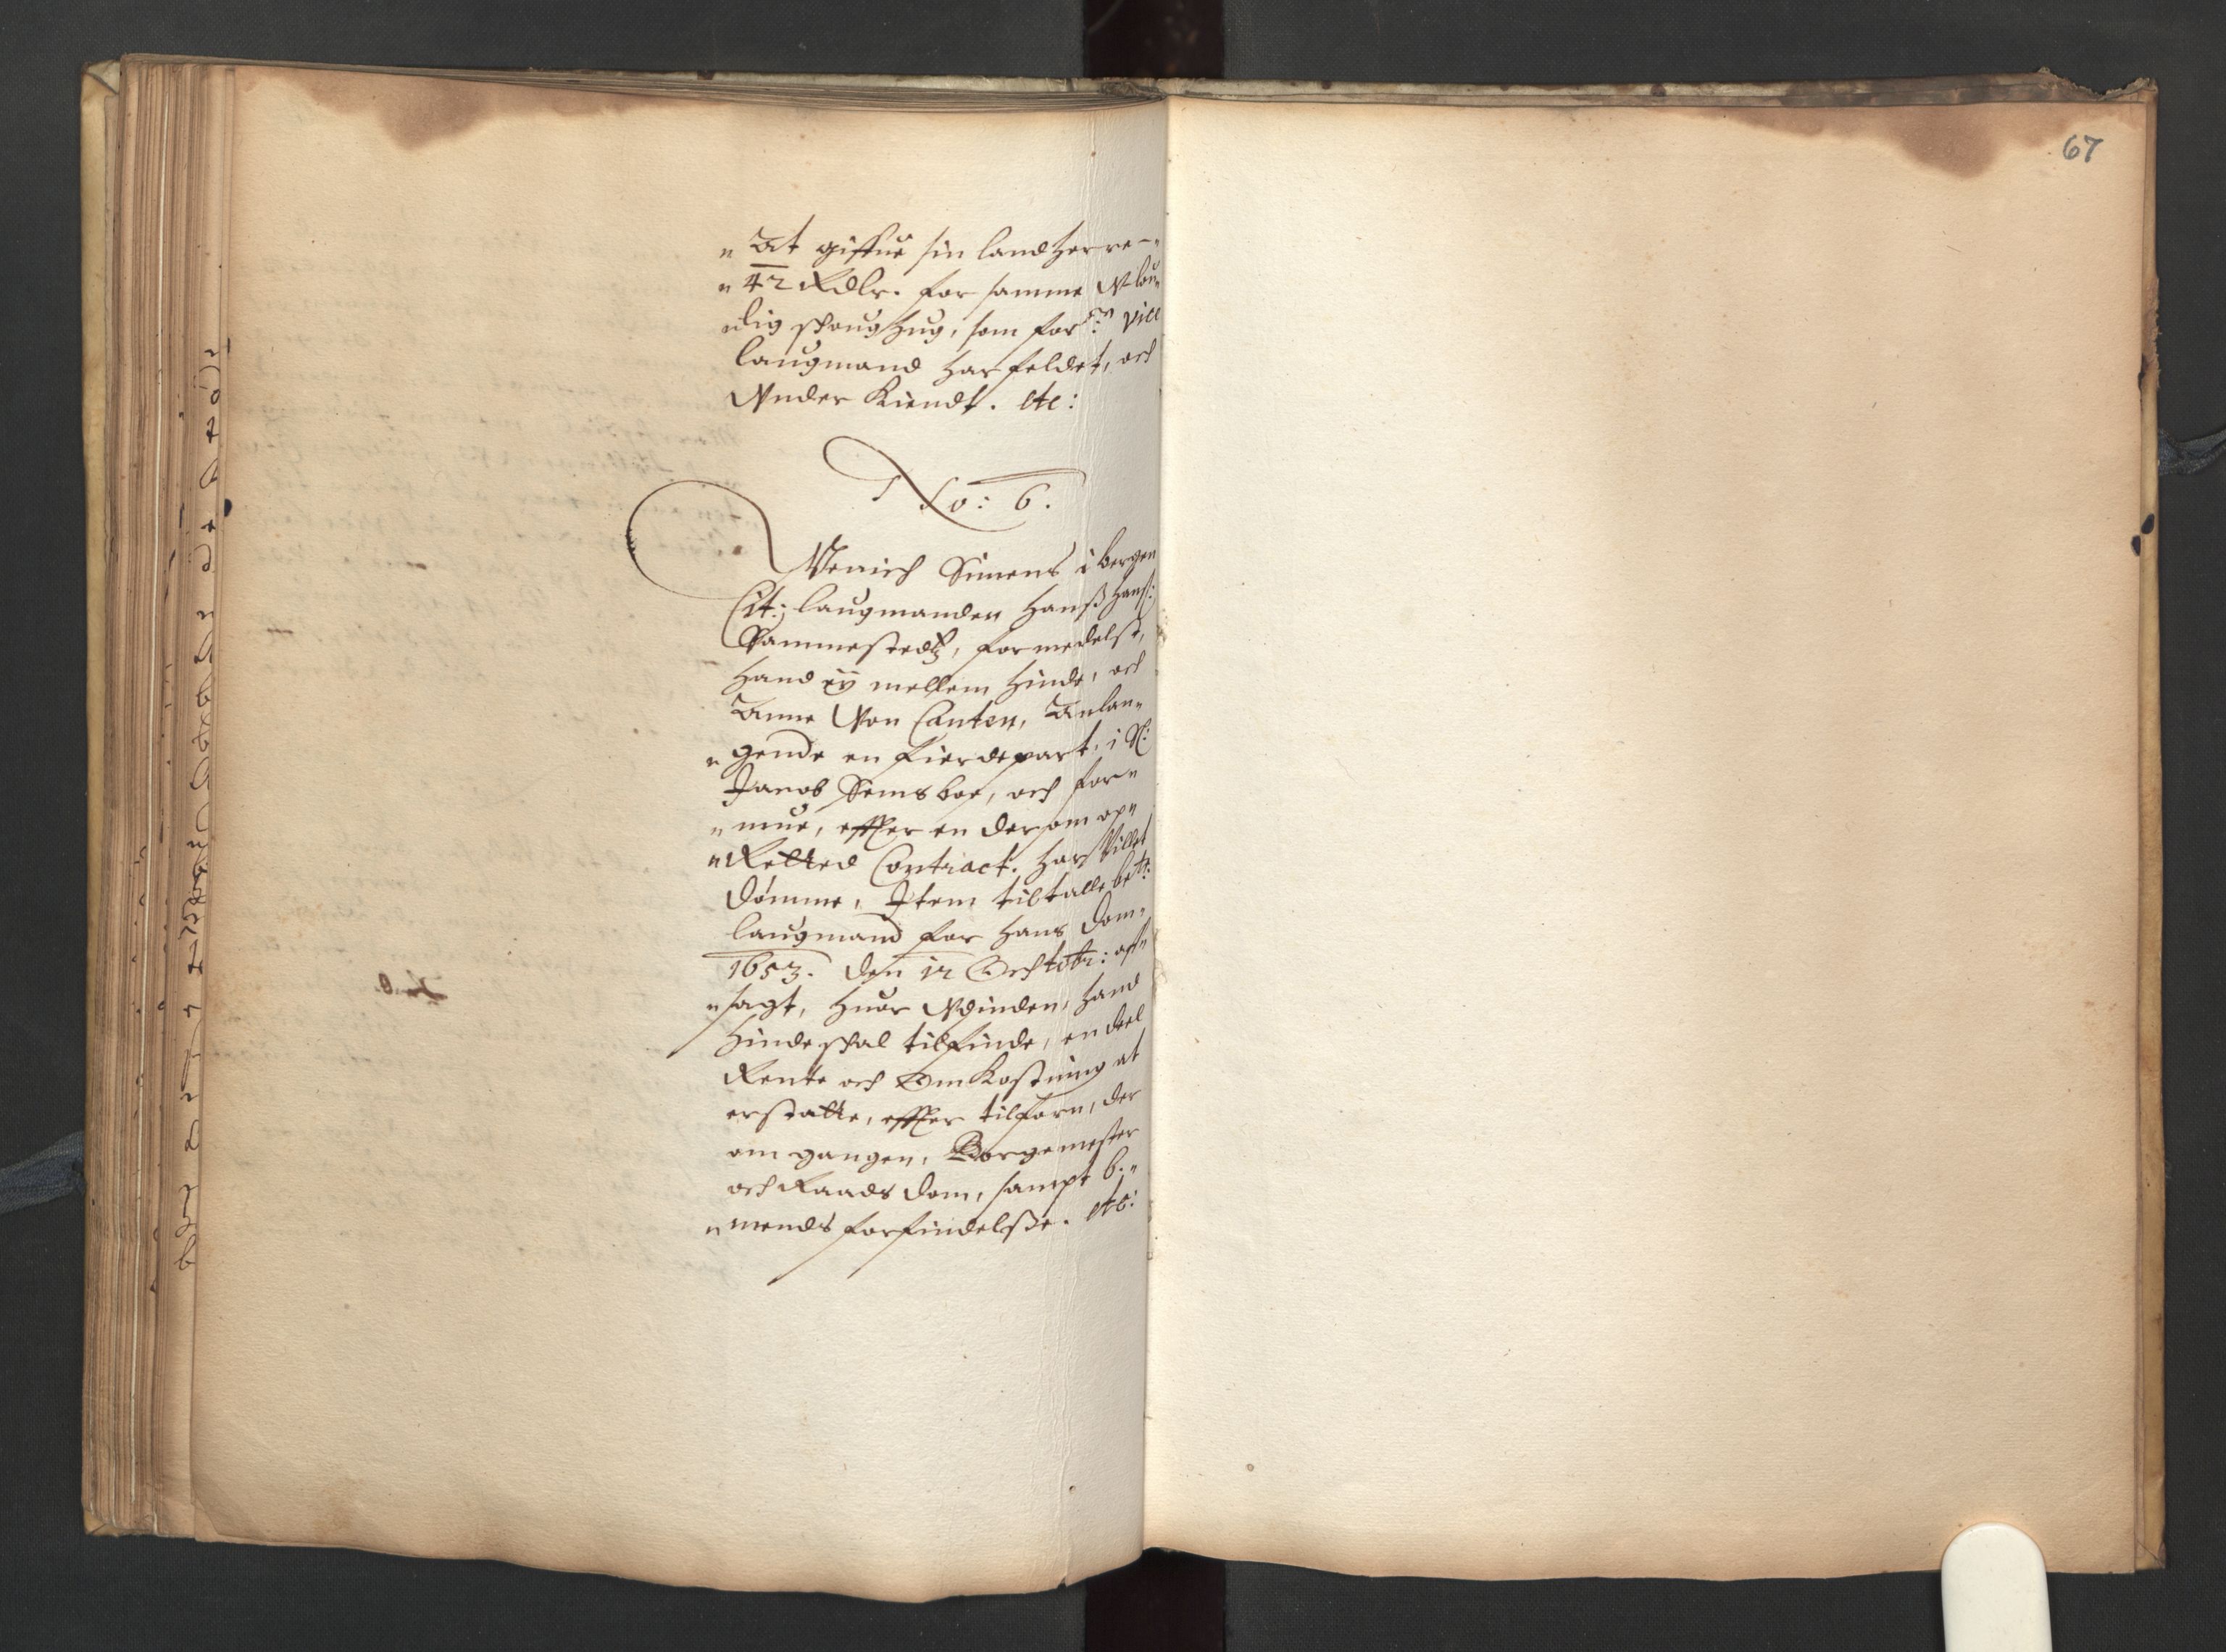 " At giffue sin landherre-"
" 42 Rdlr. for samme Wlou"
"dig skoughug, som for: vice
laugmand har feldet, och
Wnder Kiendt. etc:
No: 6.
Wenich Simens i bergen
Cit: laugmanden Hanß Hanß:
Sammestedtz, formedelst,
hand ey mellem hinde, och
Anne Von Canten, Anlan"
"gende en fierdepart, i Sl:
Jacob Sems boe, och for"
"mue, effter en derom op"
"Retted Contract. har Villet
dømme, Item tiltalle bete:
laugmand for hans Dom,
1653. den 12 Octobr: aff"
"sagt, huor Vdinden, hand
hinde skal tilfinde, en deel
Rente och Omkostning at
erstatte, effter tilforn, der
om gangen, Borgemester
och Raads dom, sampt 6."
"mends forfindelsße. etc:
67